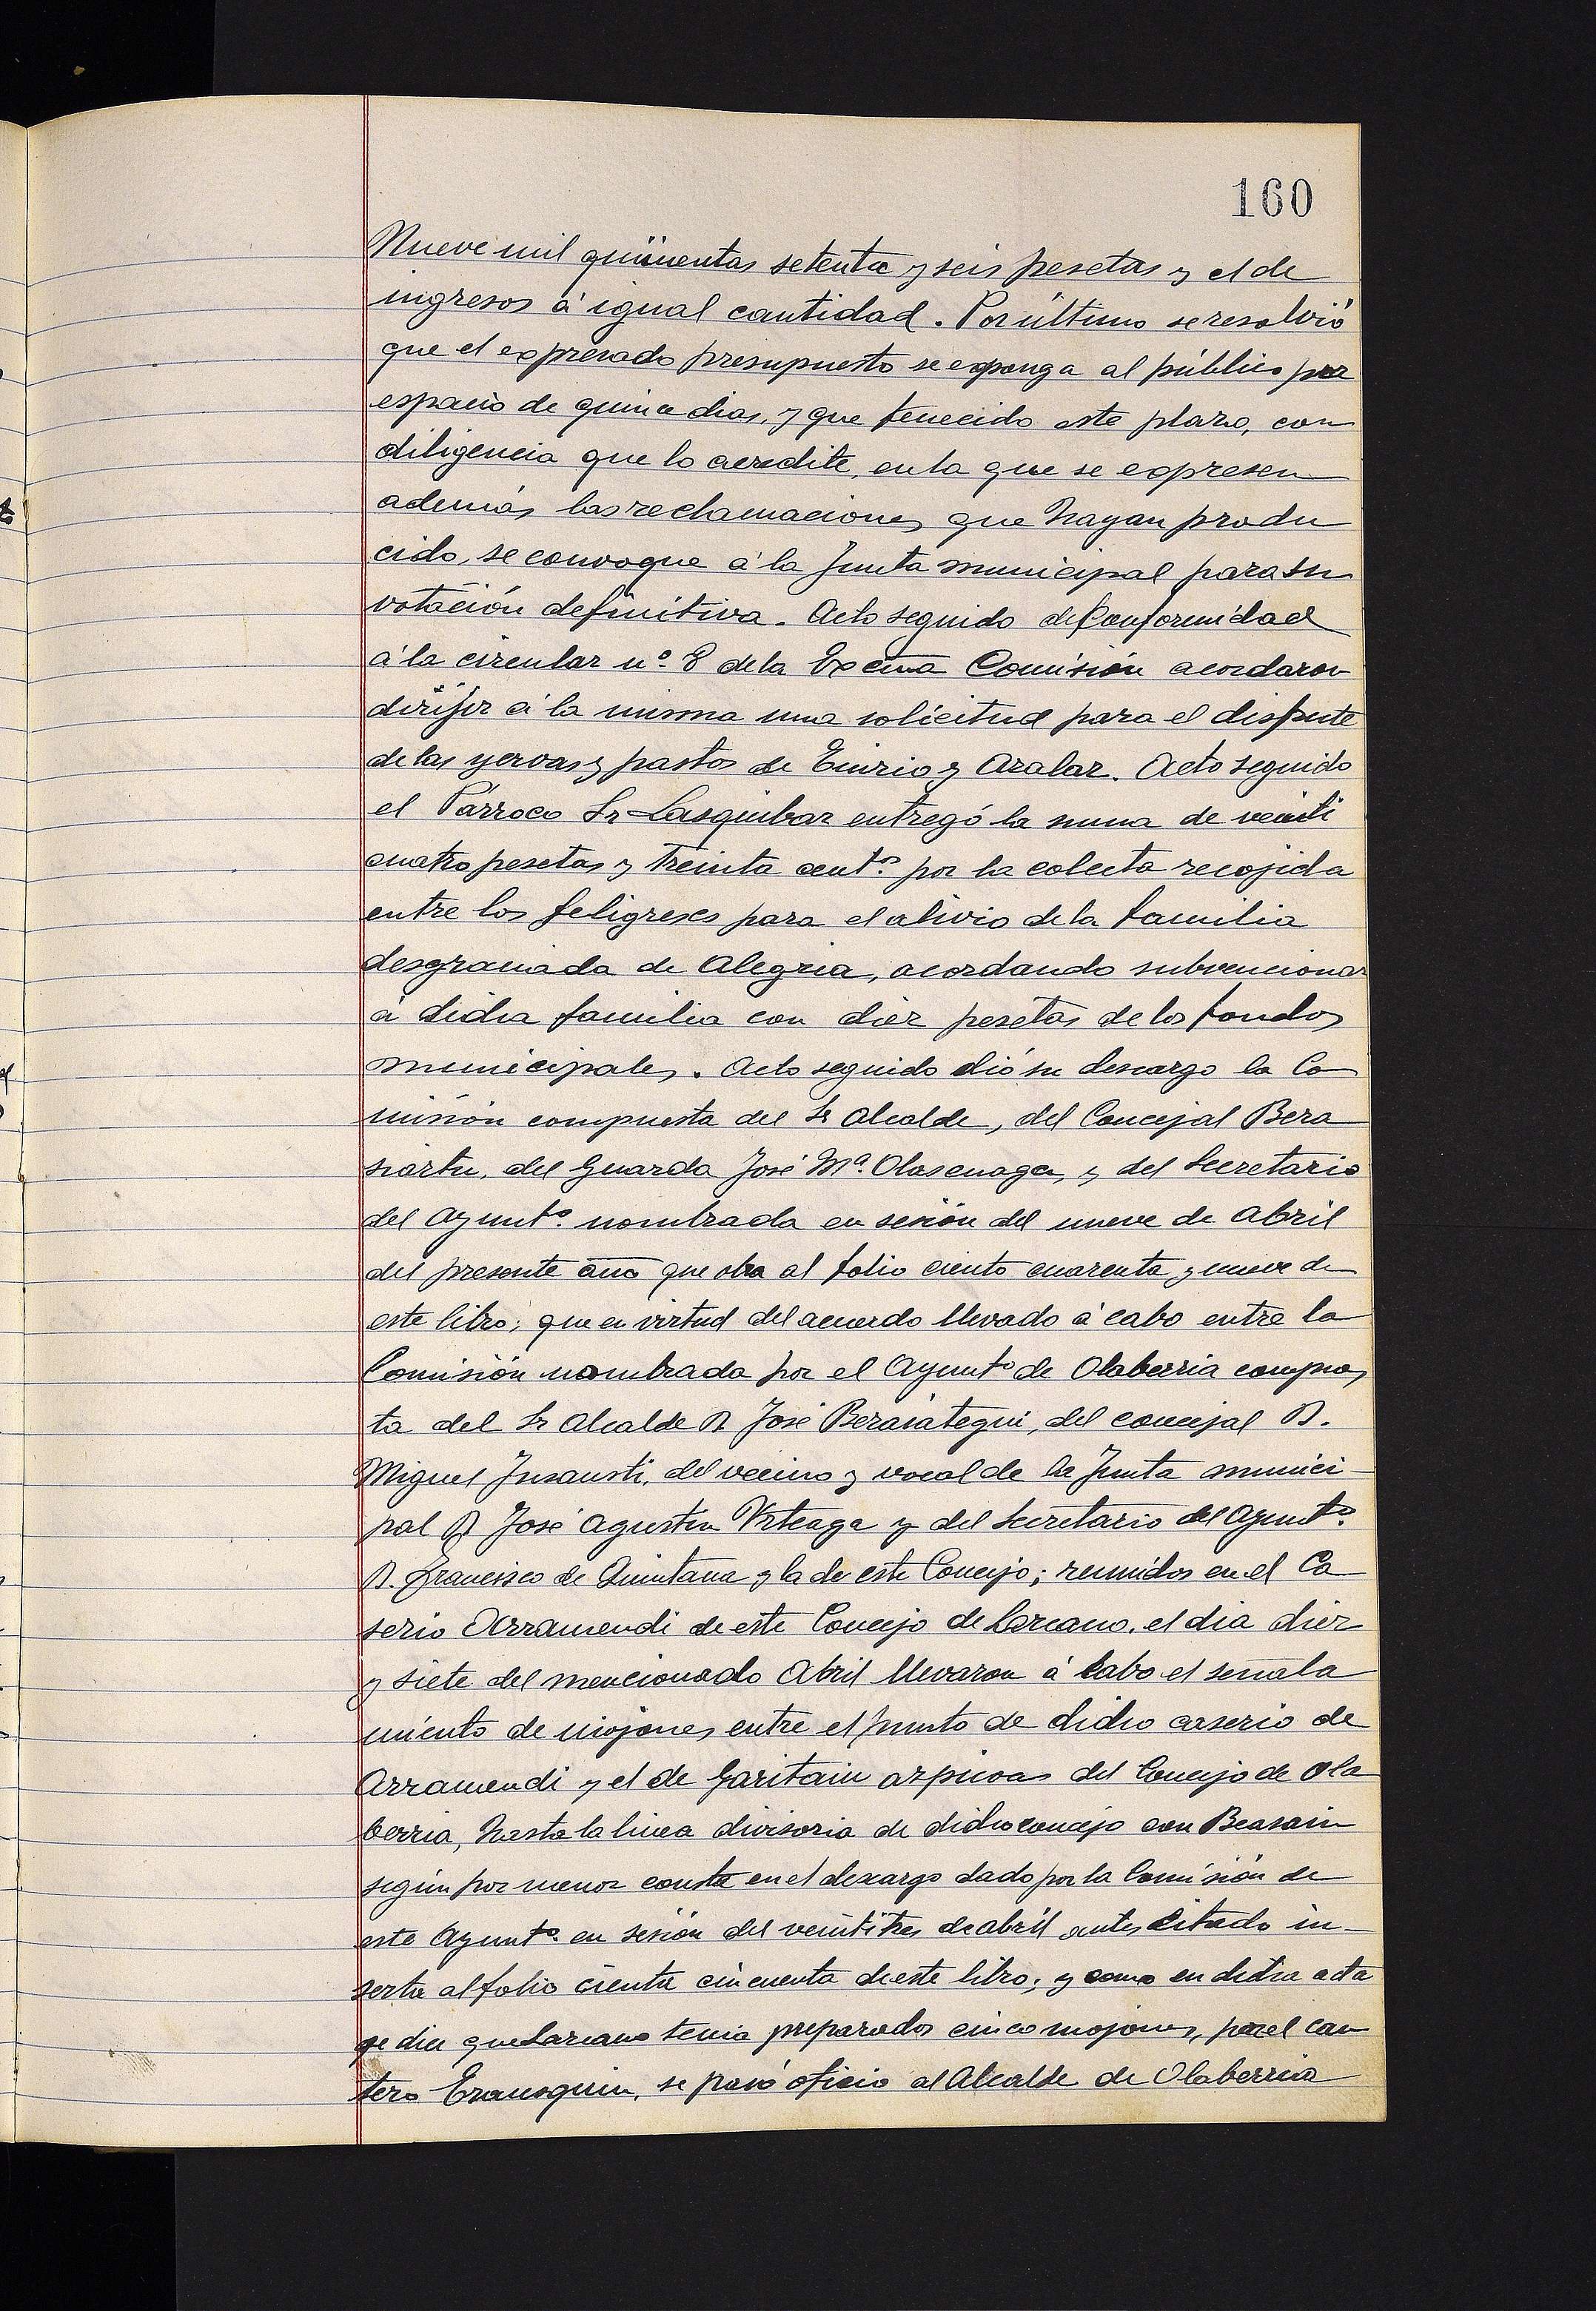 160
Nueve mil quinientas setenta y seis pesetas y el de
ingresos á igual cantidad. Por último se resolvió
que el expresado presupuesto se exponga al público por
espacio de quince dias, y que fenecido este plazo, con
diligencia que lo acredite, en la que se expresen
además las reclamaciones que hayan produ
cido, se convoque á la Junta municipal para su
votación definitiva. Acto seguido de Conformidad
á la circular nº 8 de la Excma Comisión acordaron
dirijir á la misma una solicitud para el disfrute
de las yervas y pastos de Enirio y Aralar. Acto seguido
el Párroco Sr Lasquibar entregó la suma de veinti
cuatro pesetas y treinta centº por la colecta recojida
entre los feligreses para el alivio de la familia
desgraciada de Alegria, acordando subvencionar
á dicha familia con diez pesetas de los fondos
municipales. Acto seguido dió su descargo la Co
misión compuesta del Sr Alcalde, del Concejal Bera
siartu, del Guarda José Mª Olasenaga, y del Secretario
del Ayuntº nombrada en sesión del nueve de Abril
del presente año que obra al folio ciento cuarenta y nueve de
este libro; que en virtud del acuerdo llevado á cabo entre la
Comisión nombrada por el Ayuntº de Olaberria compues
ta del Sr Alcalde D. José Berasategui, del concejal D.
Miguel Insausti, del vecino y vocal de la Junta munici-
pal D. José Agustin Urteaga y del Secretario del Ayuntº
D. Francisco de Quintana y la de este Concejo; reunidos en el Ca
serio Arramendi de este Concejo de Lazcano, el dia diez
y siete del mencionado Abril llevaron á cabo el señala
miento de mojones entre el punto de dicho caserio de
Arramendi y el de Garitain azpicoa del Concejo de Ola
berria, hasta la linea divisoria de dicho concejo con Beasain
según por menor consta en el descargo dado por la Comisión de
este Ayuntº en sesión del veintitres de abril antes citado in-
serta al folio ciento cincuenta de este libro; y como en dicha acta
se dice que Lazcano tenia preparados cinco mojones, por el can
tero Erausquin, se pasó oficio al Alcalde de Olaberria